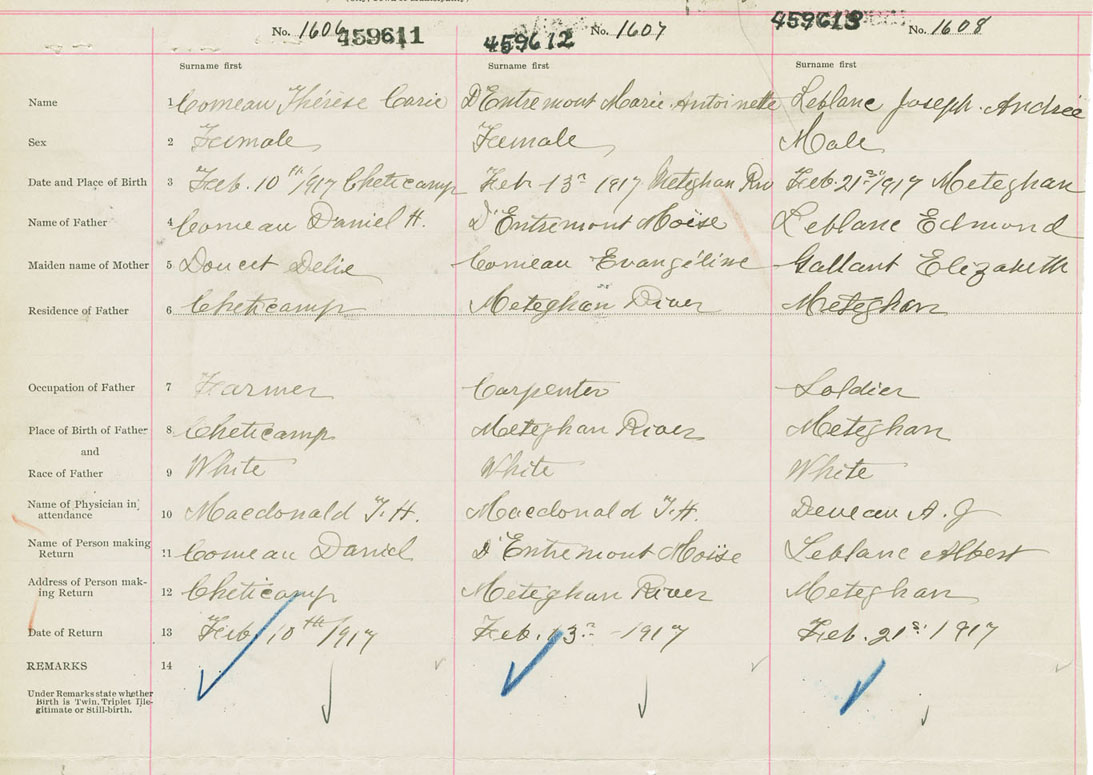 No. 1606 459611 459612 No. 1607 459613 No. 1608
Surname first Surname first Surname first
Name 1 Comeau Thérèse Carie D'Entremont Marie Antoinette Leblanc Joseph Andrée
Sex 2 Female Female Male
Date and Place of Birth 3 Feb. 10th/1917 Cheticamp Feb 13rd 1917 Meteghan Riv Feb. 21st/1917 Meteghan
Name of Father 4 Comeau Daniel H. D'Entremont Moïse Leblanc Edmond
Maiden name of Mother 5 Doucet Delie Comeau Evangéline Gallant Elizabeth
Residence of Father 6 Cheticamp Meteghan River Meteghan
Occupation of Father 7 Farmer Carpenter Soldier
Place of Birth of Father 8 Cheticamp Meteghan River Meteghan
and
Race of Father 9 White White White
Name of Physician in
attendance 10 Macdonald T. H. Macdonald T. H. Deveau A. J
Name of Person making
Return 11 Comeau Daniel D'Entremont Moïse Leblanc Albert
Address of Person mak-
ing Return 12 Cheticamp Meteghan River Meteghan
Date of Return 13 Feb. 10th/1917 Feb. 13rd - 1917 Feb. 21st 1917
REMARKS 14
Under Remarks state whether
Birth is Twin, Triplet Ille-
gitimate or Still-birth.